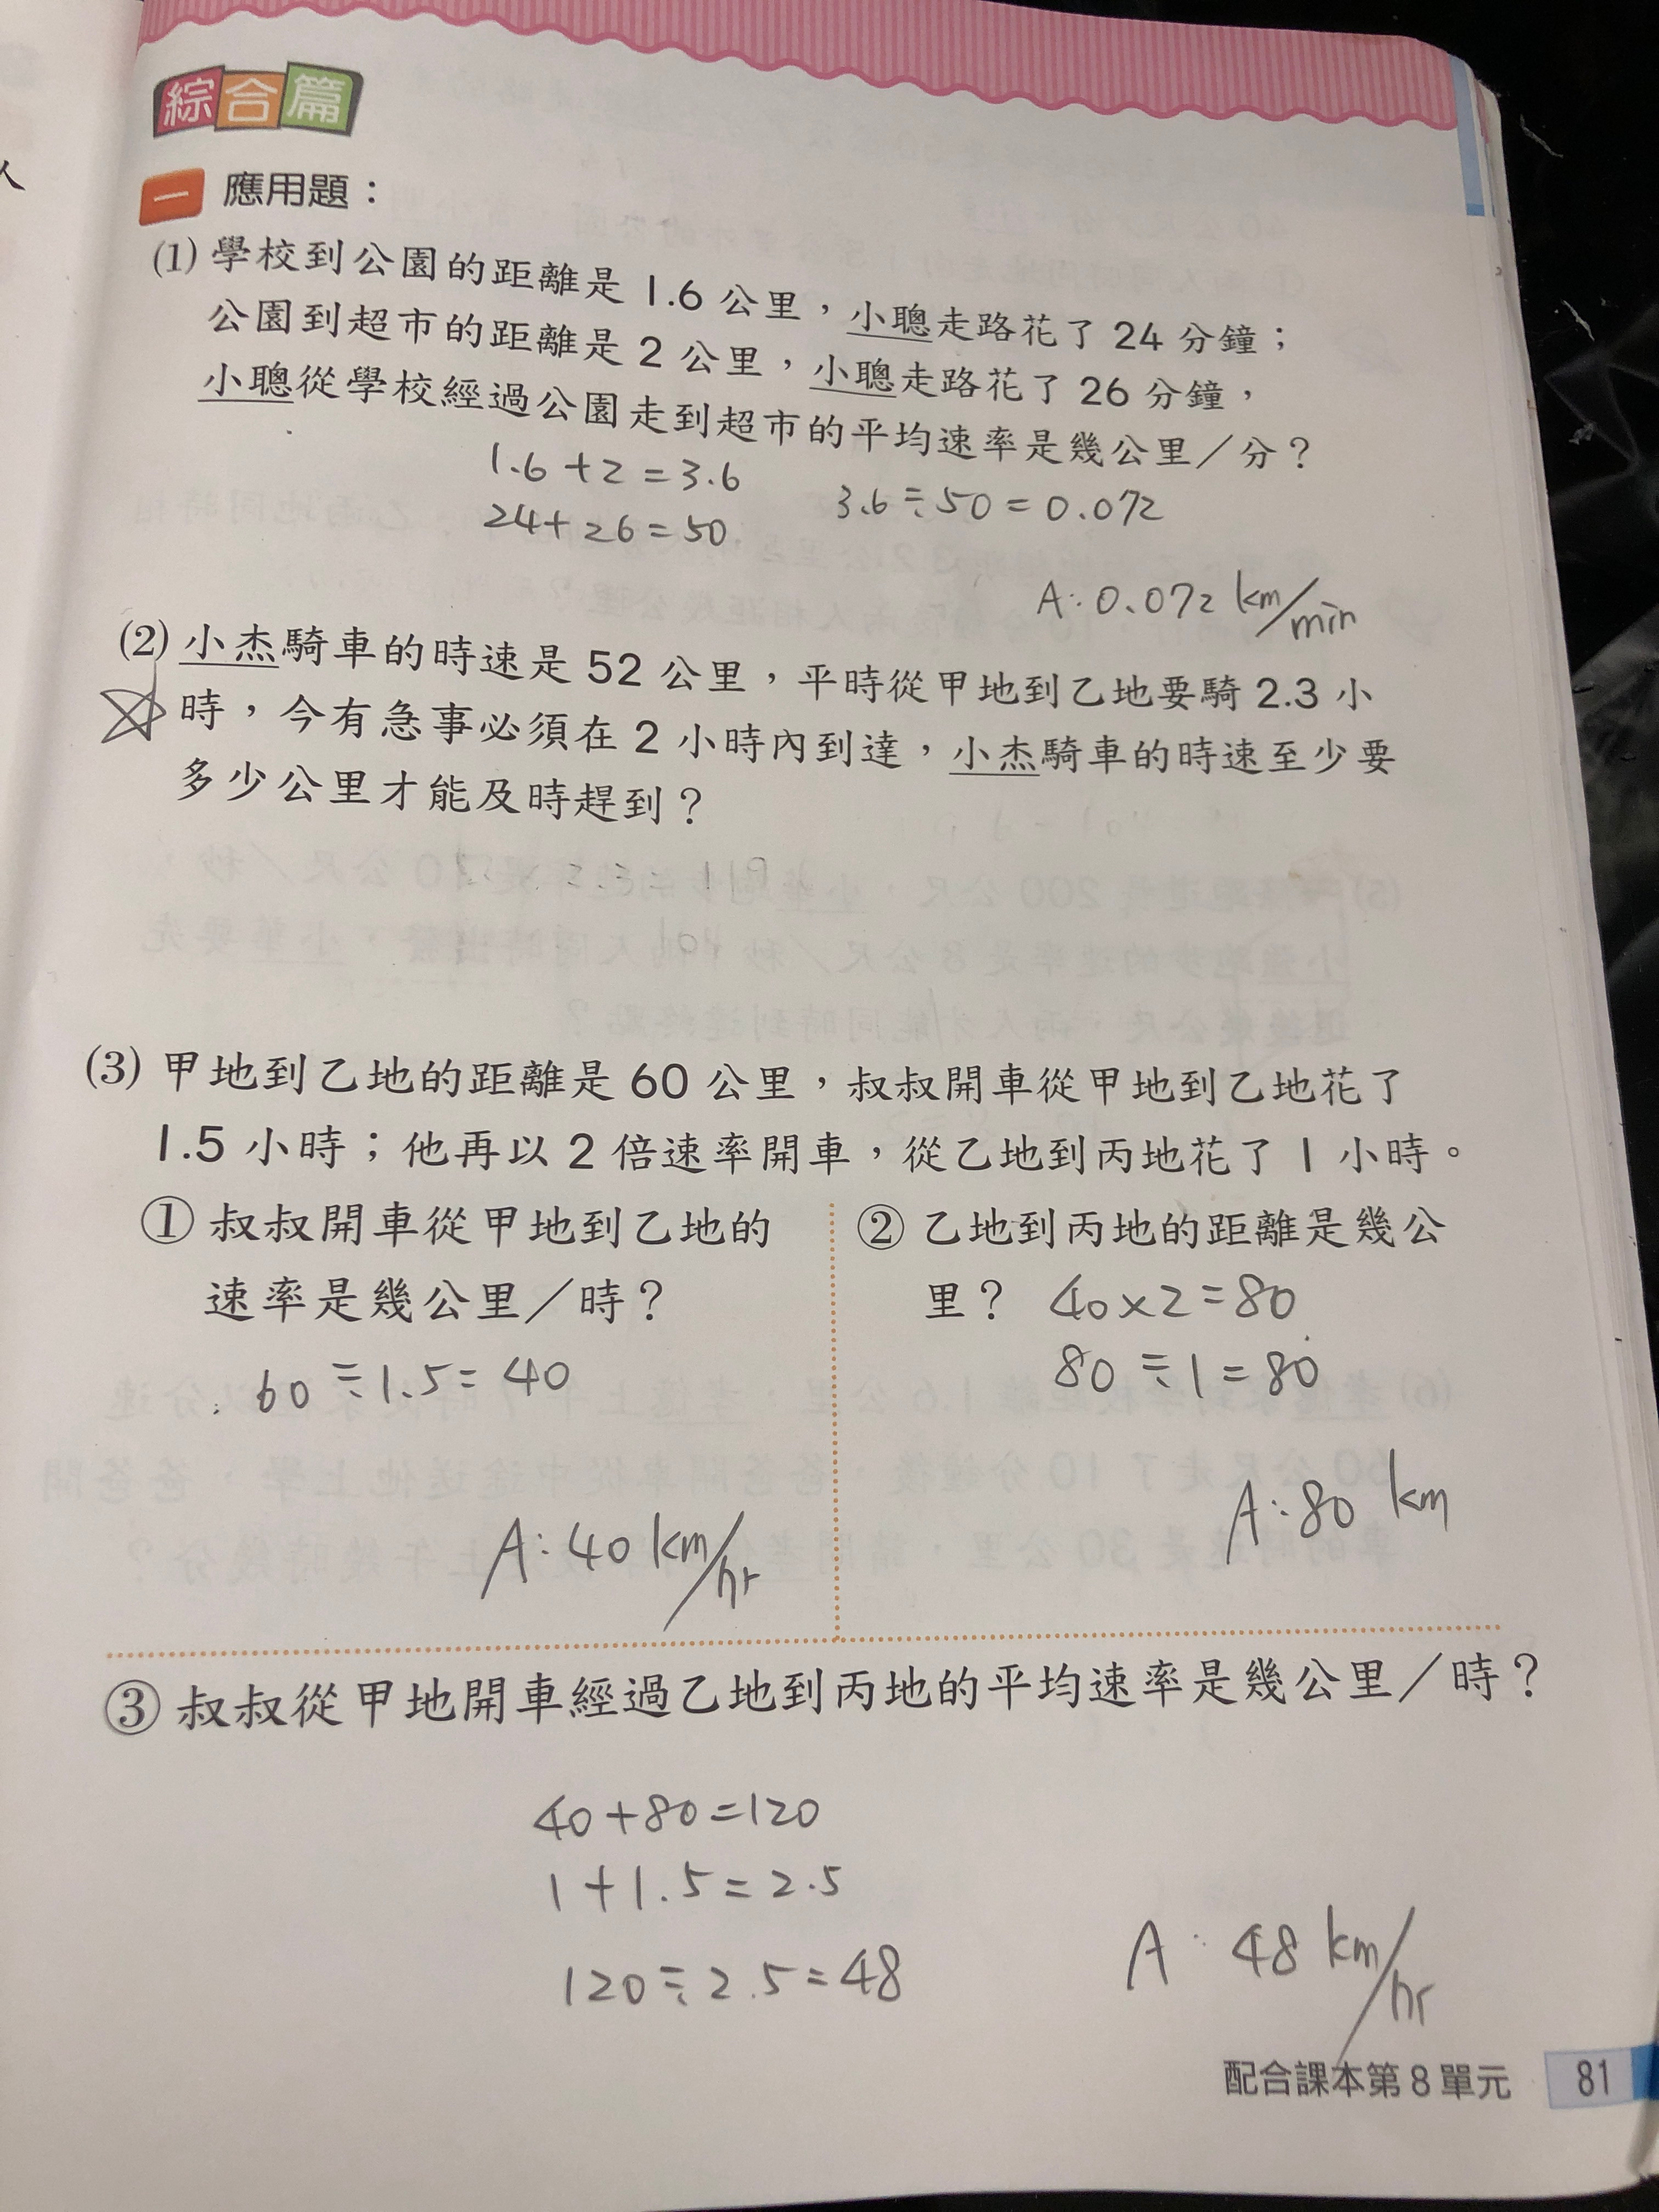 人
綜合篇
一 應用題：
(1) 學校到公園的距離是 1.6 公里，小聰走路花了 24 分鐘；
公園到超市的距離是 2 公里，小聰走路花了 26 分鐘，
小聰從學校經過公園走到超市的平均速率是幾公里／分？
1.6 + 2 = 3.6
24 + 26 = 50
3.6 ÷ 50 = 0.072
A: 0.072 km/min
(2) 小杰騎車的時速是 52 公里，平時從甲地到乙地要騎 2.3 小
時，今有急事必須在 2 小時內到達，小杰騎車的時速至少要
多少公里才能及時趕到？
(3) 甲地到乙地的距離是 60 公里，叔叔開車從甲地到乙地花了
1.5 小時；他再以 2 倍速率開車，從乙地到丙地花了 1 小時。
① 叔叔開車從甲地到乙地的
速率是幾公里／時？
60 ÷ 1.5 = 40
A: 40 km/hr
② 乙地到丙地的距離是幾公
里？ 40 × 2 = 80
80 ÷ 1 = 80
A: 80 km
③ 叔叔從甲地開車經過乙地到丙地的平均速率是幾公里／時？
40 + 80 = 120
1 + 1.5 = 2.5
120 ÷ 2.5 = 48
A: 48 km/hr
配合課本第 8 單元 81